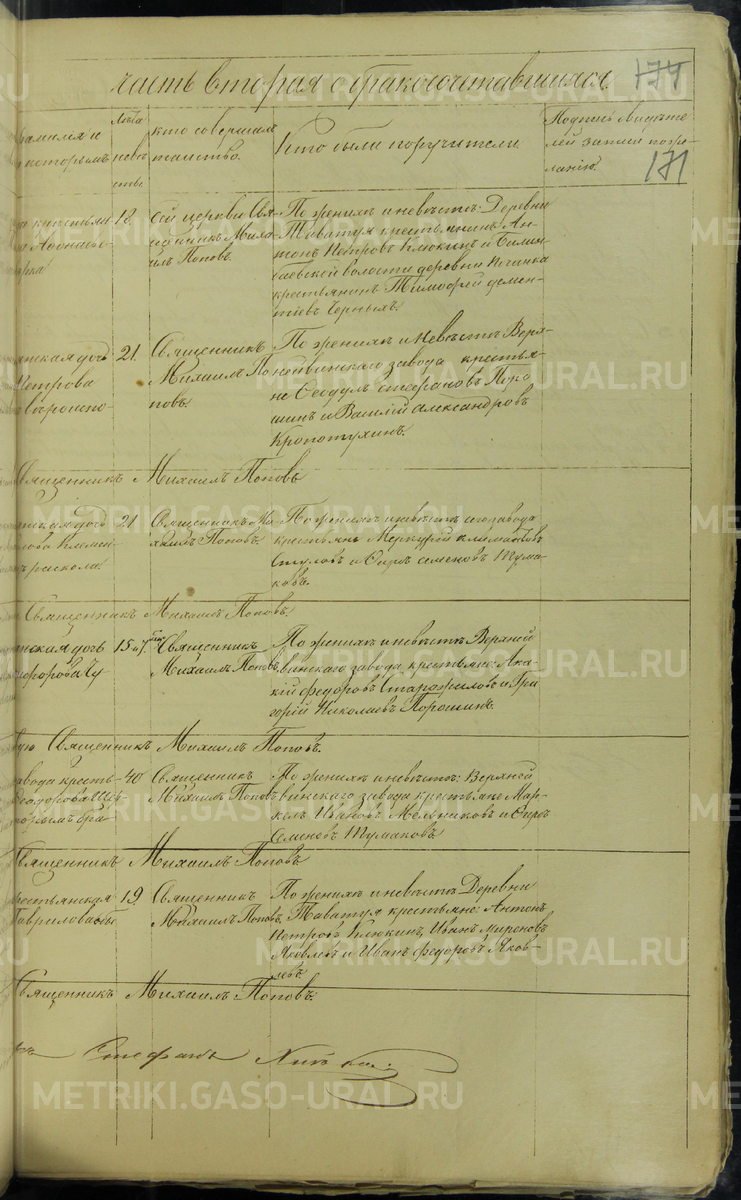 часть вторая о бракосочетавшихся.
174
171
Лѣта невѣсты.
кто совершалъ таинство.
Кто были поручители
Подпись свидѣте
лей записи по же
ланію.
18
сей церкви Свя
щенникъ Миха
илъ Поповъ
По женихѣ и невѣстѣ: Деревни
Таватуя крестьянинъ Ан-
тонъ Петровъ Клюкинъ и Билим-
баевской волости деревни
крестьянинъ Тимофей Демен-
тіевъ Черныхъ.
нская дочь
Петрова
21.
Священникъ
Михаилъ По
повъ.
По женихѣ и Невѣстѣ Верх-
нейвинскаго завода крестья-
не Ѳеодулъ Стефановъ Поро
шинъ и Василій Александровъ
Кропотухинъ.
Священникъ Михаилъ Поповъ
раскола.
21
Священникъ Ми
хаилъ Поповъ.
По женихѣ и невѣстѣ сего завода
крестьяне Меркурій Климантовъ
Стуловъ и Сиръ Семеновъ Тума
ковъ.
Священникъ Михаилъ Поповъ.
нская дочь
15 и 7
Священникъ
Михаилъ Поповъ.
По женихѣ и невѣстѣ Верхней
винскаго завода крестьяне: Ака-
кій Федоровъ Старожиловъ и Гри
горій Николаевъ Порошинъ.
Священникъ Михаилъ Поповъ.
завода кресть-
40
Священникъ
Михаилъ Поповъ
По женихѣ и невѣстѣ: Верхней
винскаго завода крестьяне Мар-
келъ Ивановъ Мельниковъ и Сиръ
Семеновъ Тумаковъ
Священникъ Михаилъ Поповъ
рестьянская
Гаврилова
19
Священникъ
Михаилъ Поповъ,
По женихѣ и невѣстѣ Деревни
Таватуя крестьяне: Антонъ
Петровъ Клюкинъ, Иванъ Мироновъ
Яковлевъ и Иванъ Федоровъ Яков-
левъ
Священникъ Михаилъ Поповъ.
Стефанъ
METRIKI.GASO-URAL.RU